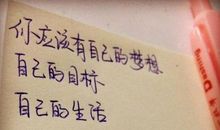 你应该有自己的梦想
自己的目标
自己的生活